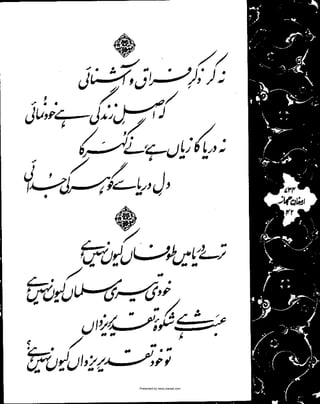 نہ کر ذکرِ فراق و آشنائی
کہ اصلِ زندگی ہے خود نمائی
نہ دریا کا زیاں ہے، نے گہر کا
دلِ دریا سے گوہر کی جدائی
ترے دریا میں طوفاں کیوں نہیں ہے
خودی تیری مسلماں کیوں نہیں ہے
عبث ہے شکوۂ تقدیرِ یزداں
تو خود تقدیرِ یزداں کیوں نہیں ہے؟
۷۳۴
ارمغانِ حجاز
۴۲